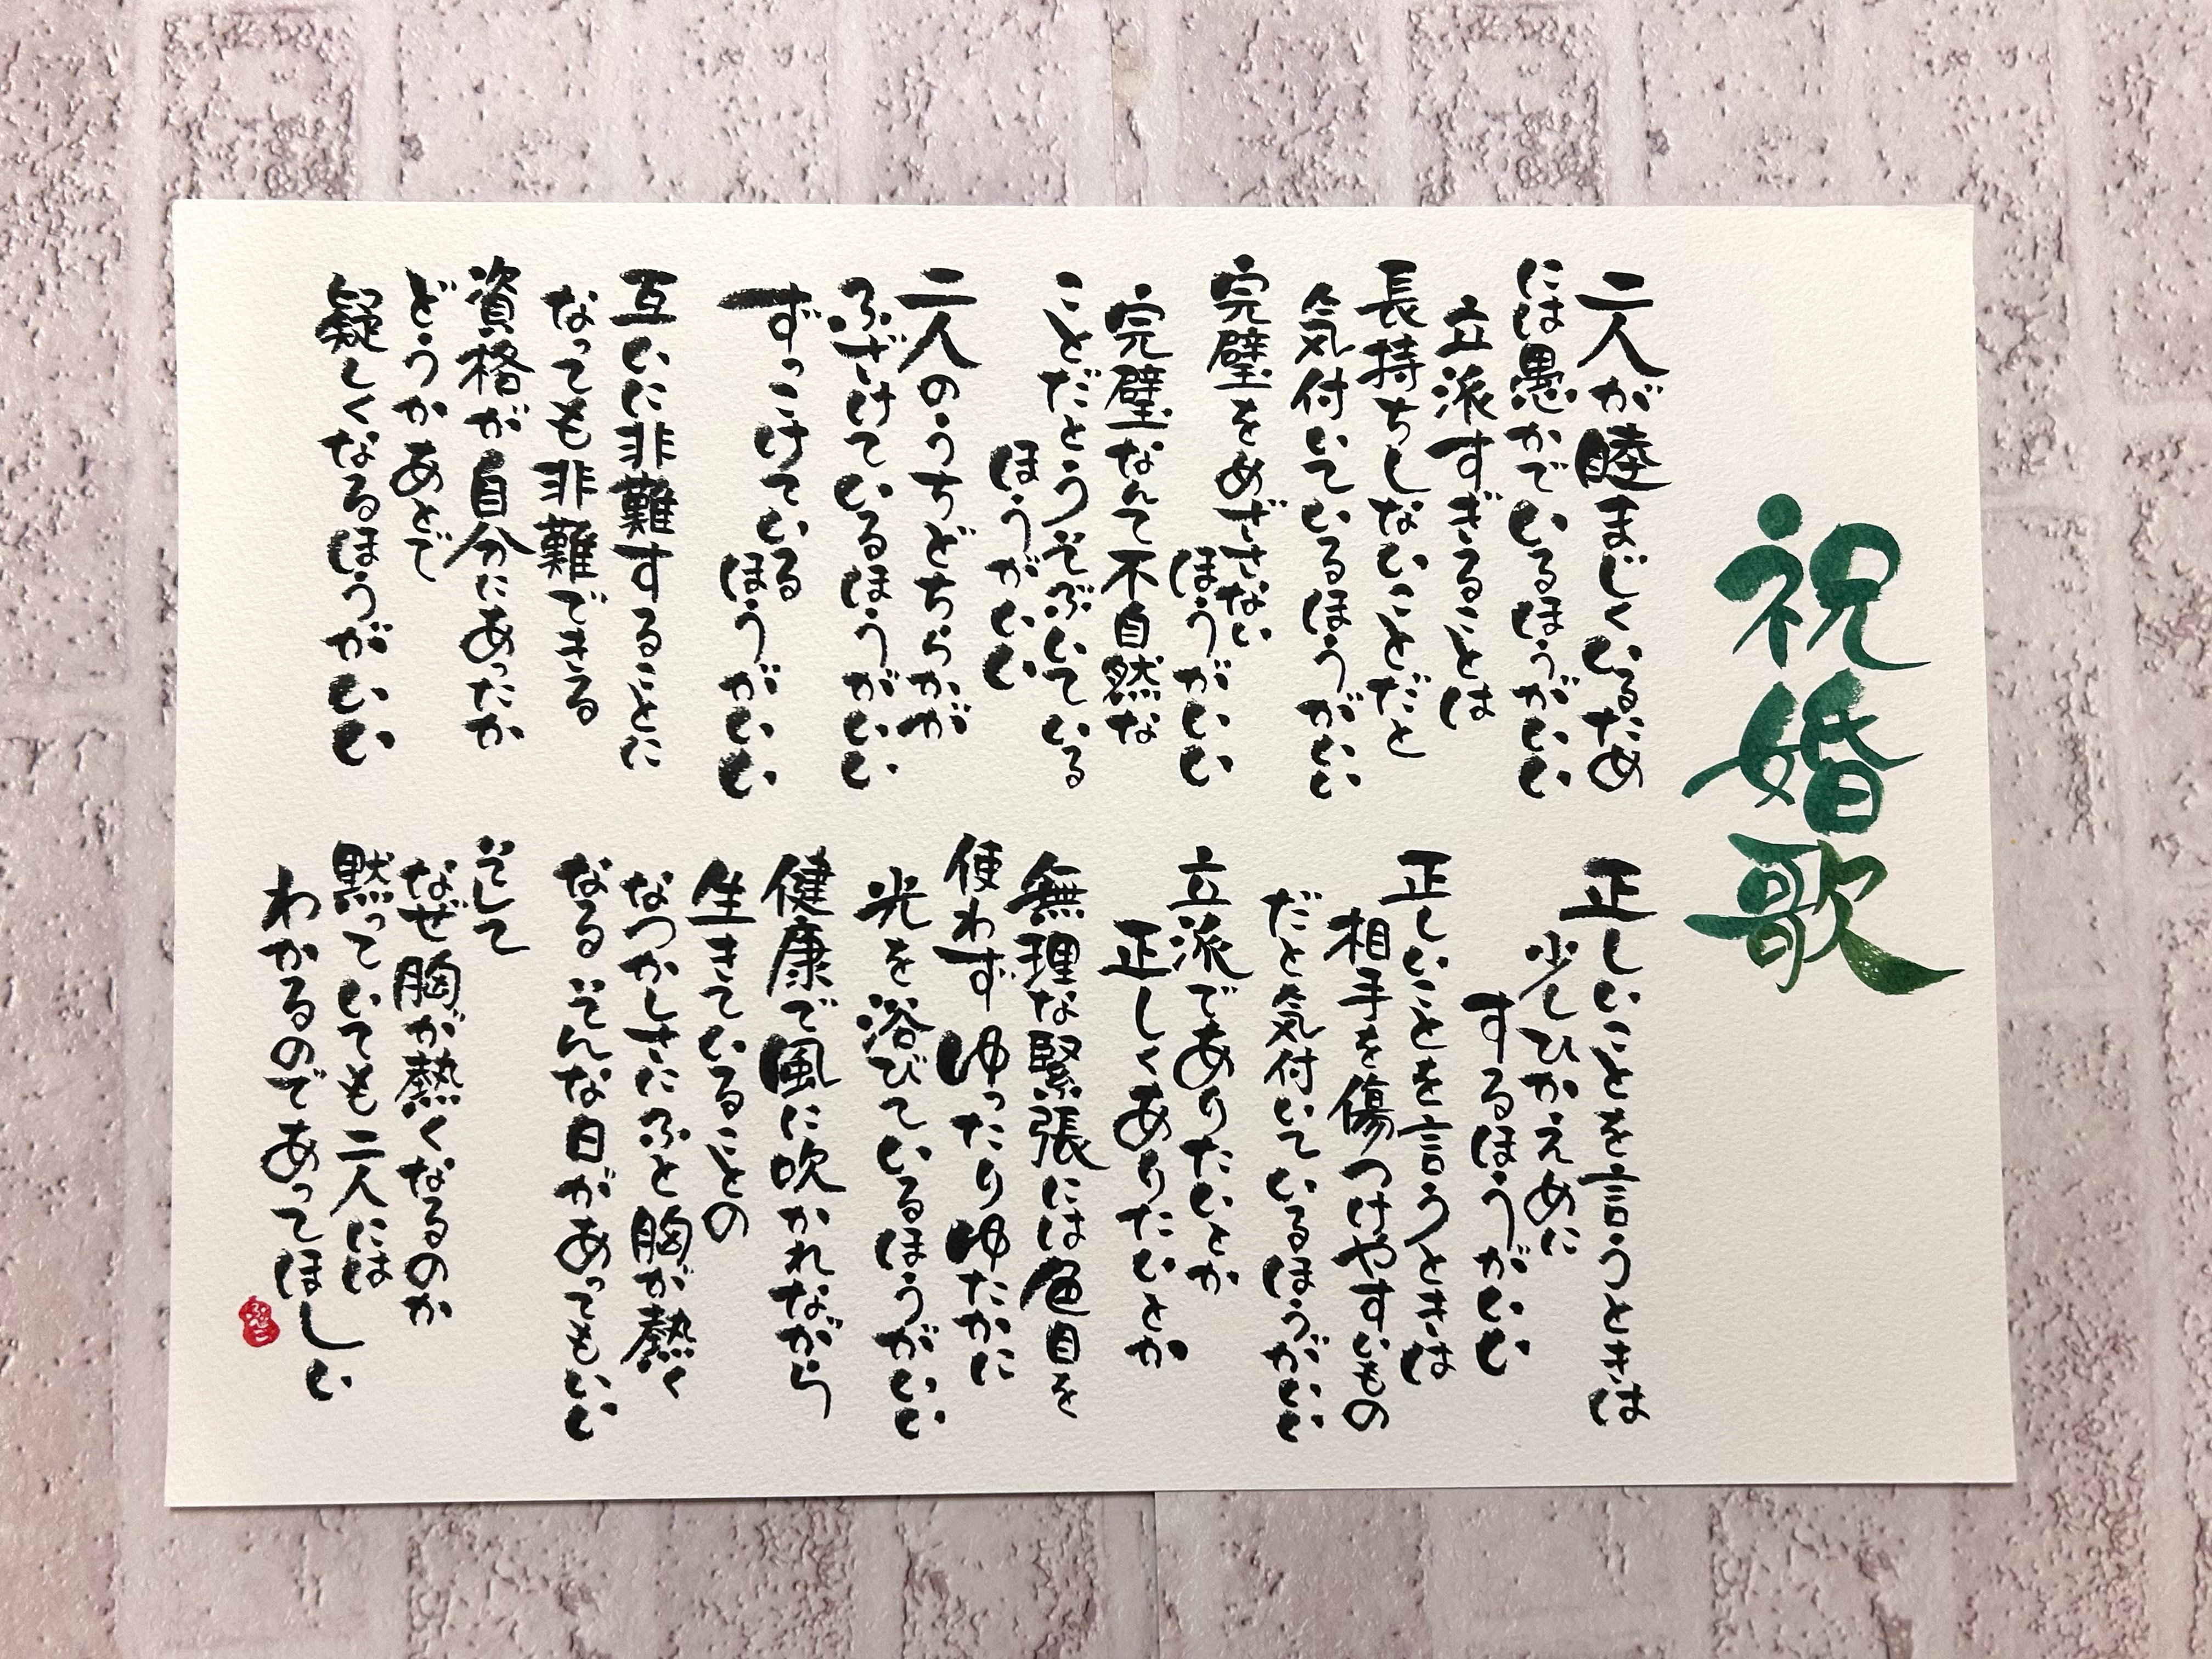 祝婚歌
二人が睦まじくいるため
には愚かでいるほうがいい
立派すぎることは
長持ちしないことだと
気付いているほうがいい
完璧をめざさない
ほうがいい
完璧なんて不自然な
ことだとうそぶいている
ほうがいい
二人のうちどちらかが
ふざけているほうがいい
ずっこけている
ほうがいい
互いに非難することに
なっても非難できる
資格が自分にあったか
どうかあとで
疑しくなるほうがいい
正しいことを言うときは
少しひかえめに
するほうがいい
正しいことを言うときは
相手を傷つけやすいもの
だと気付いているほうがいい
立派でありたいとか
正しくありたいとか
無理な緊張には色目を
使わずゆったりゆたかに
光を浴びているほうがいい
健康で風に吹かれながら
生きていることの
なつかしさにふと胸が熱く
なるそんな日があってもいい
そして
なぜ胸が熱くなるのか
黙っていても二人には
わかるのであってほしい